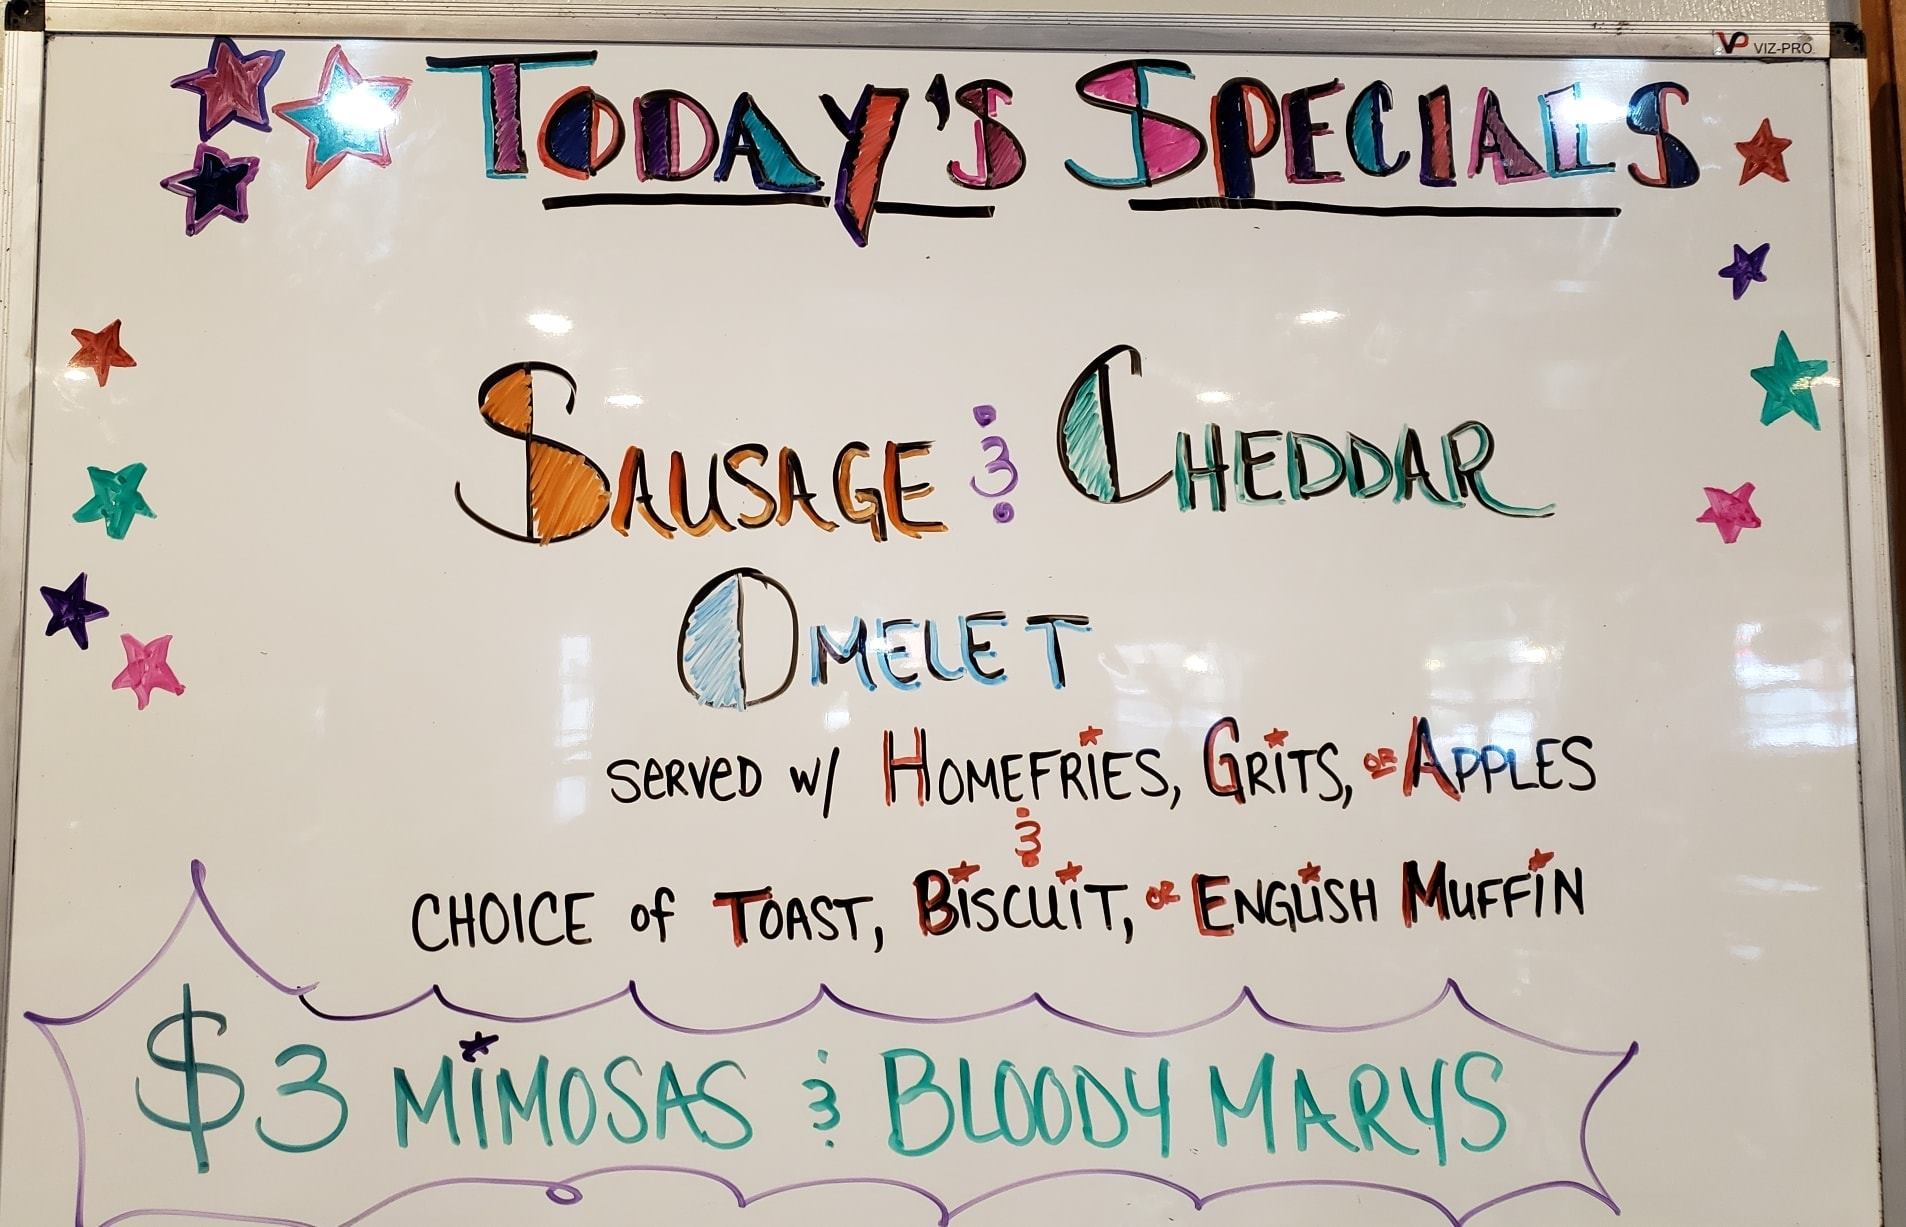 VP VIZ-PRO
TODAY'S SPECIALS
SAUSAGE & CHEDDAR
OMELET
SERVED W/ HOMEFRIES, GRITS, OR APPLES
&
CHOICE of TOAST, BISCUIT, OR ENGLISH MUFFIN
$3 MIMOSAS & BLOODY MARYS